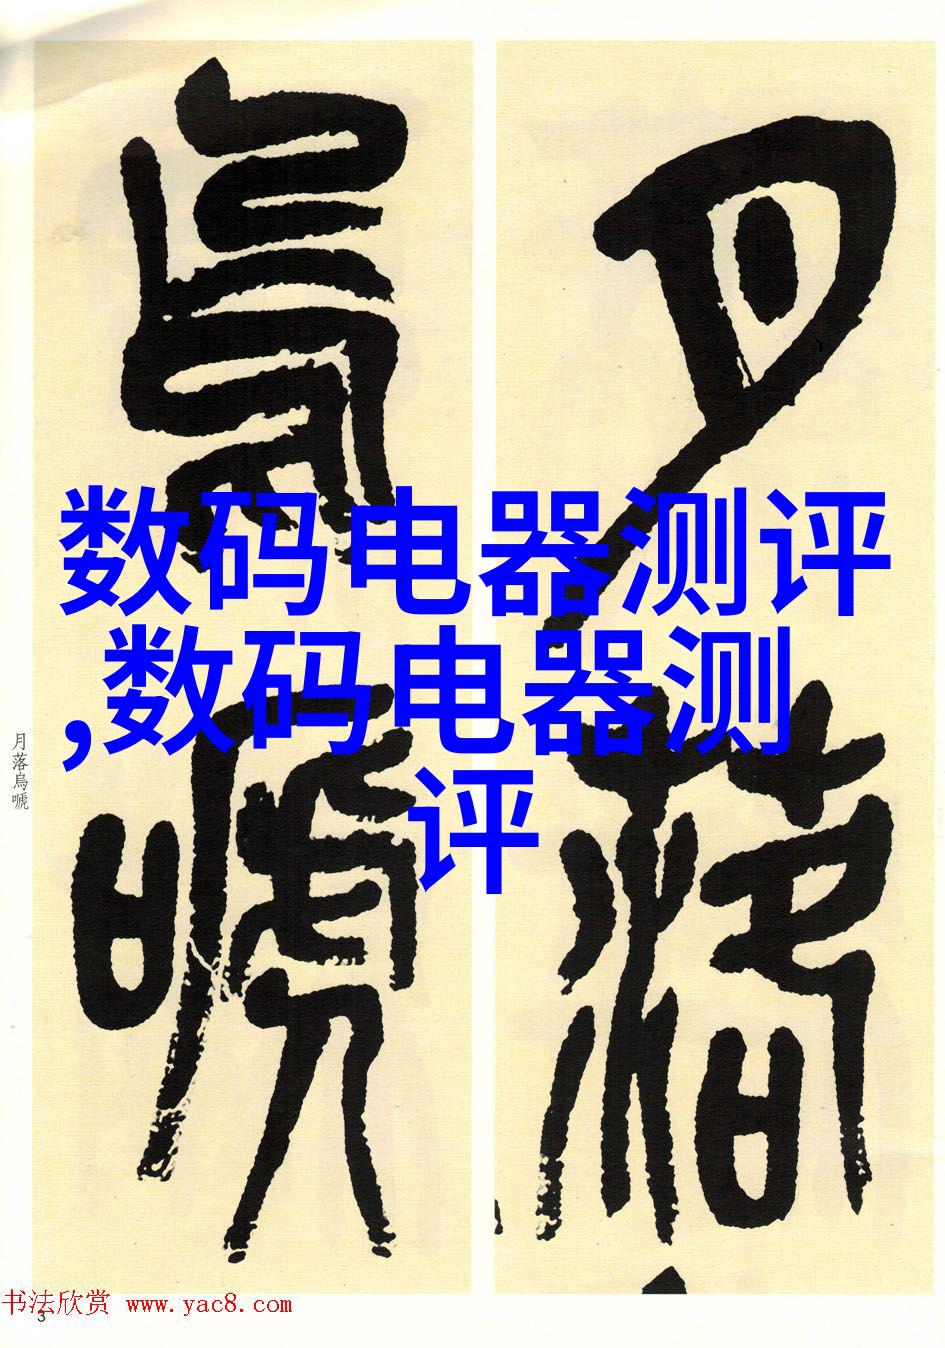 月落
烏嗁
数码电器测评
,数码电器测
评
月落烏嗁
书法欣赏 www.yac8.com
3